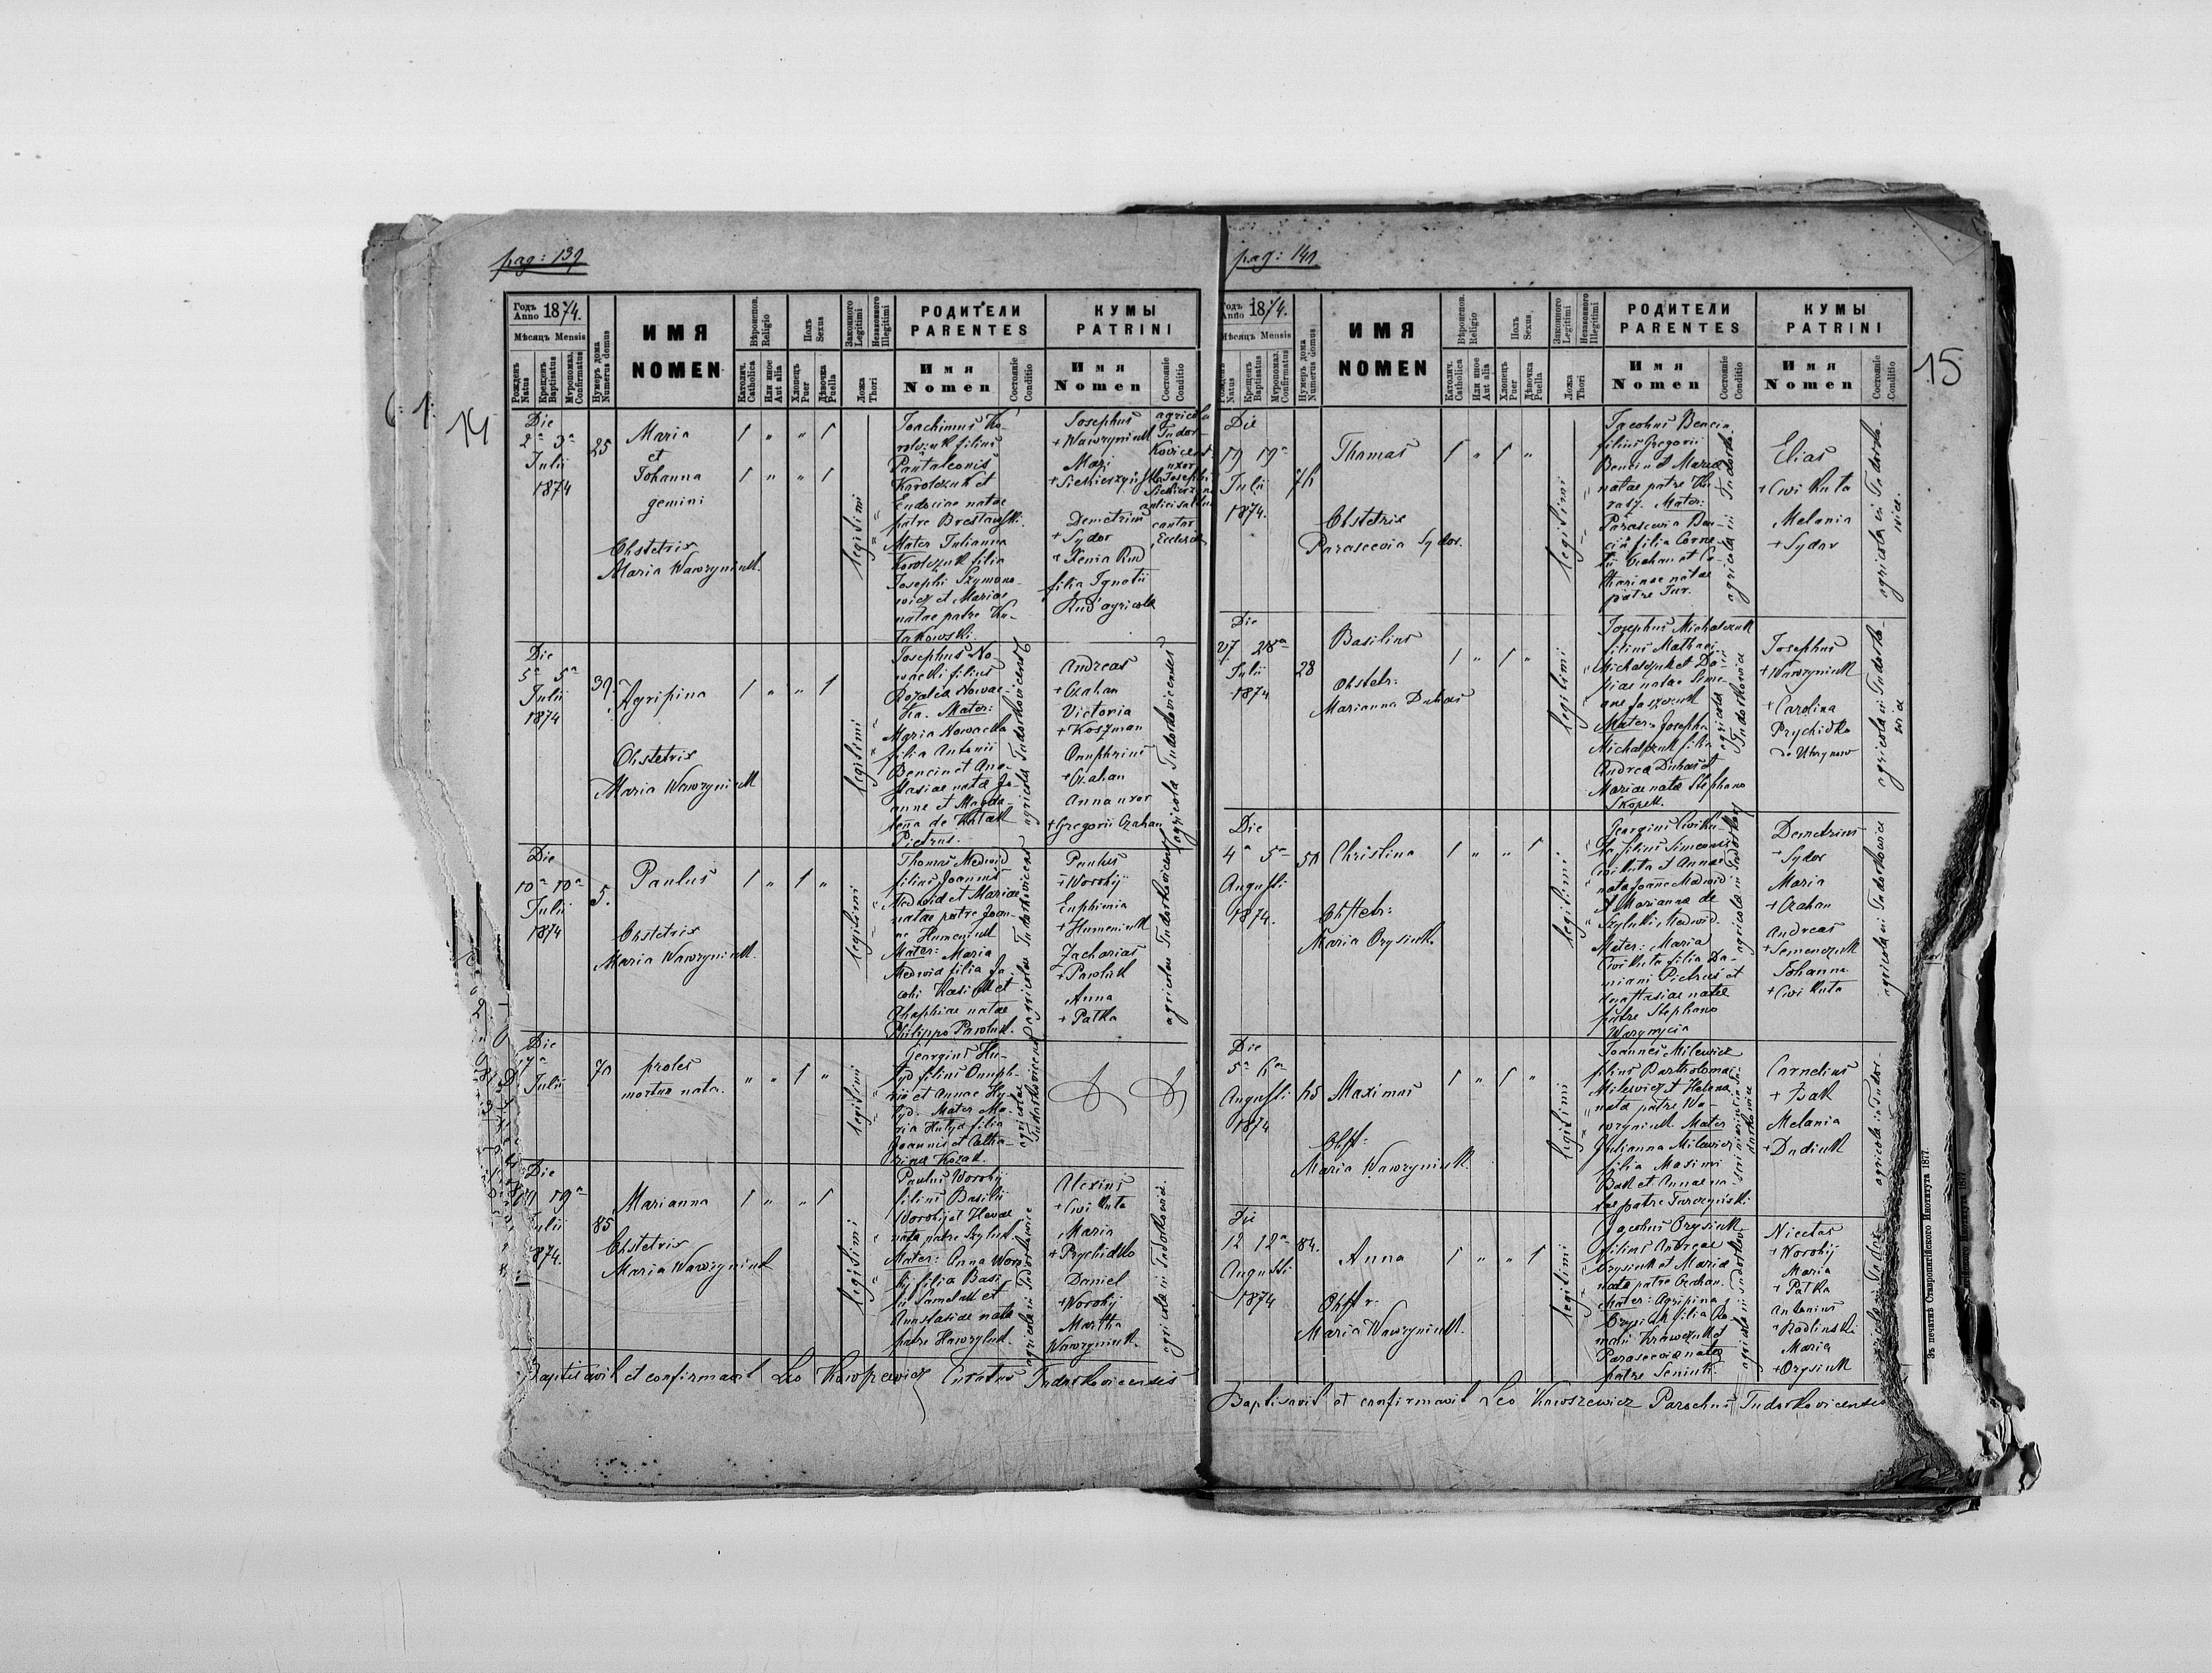 pag: 139
14
Годъ Anno 1874.
Мѣсяцъ Mensis
Рожденъ Natus
Крещенъ Baptisatus
Мѵропомаз. Confirmatus
Нумеръ дома Numerus domus
ИМЯ
NOMEN
Вѣроиспов. Religio
Католич. Catholica
Или иное Aut alia
Полъ Sexus
Хлопецъ Puer
Дѣвочка Puella
Законного Legitimi
Незаконного Illegitimi
Ложа Thori
РОДИТЕЛИ
PARENTES
Имя
Nomen
Состояніе Conditio
КУМЫ
PATRINI
Имя
Nomen
Состояніе Conditio
Die
2ª 3ª
Julii
1874
25
Maria
et
Johanna
gemini
Obstetrix
Maria Wawryniuk.
1 " " 1
1 " " 1
legitimi
Joachimus Ka-
rolczuk filius
Pantaleonis
Karolczuk et
Eudociae natae
patre Breslawski.
Mater Julianna
Korolczuk filia
Josephi Szymono-
wicz et Mariae
natae patre Ku-
lakowski.
Josephus
+ Wawryniuk
Demetrius
+ Sydor
+ Xenia Rud
filia Ignatii
Rud agricola
agricola
Tudor-
kovicens
uxor
Josephi
cantor
Eccles
Die
5ª 5ª
Julii
1874
39.
Agripina
Obstetrix
Maria Wawryniuk
1 " " 1
legitimi
Josephus No-
wacki filius
Rozalia Nowac-
ka. Mater:
Maria Nowacka
filia Antonii
Bencin et Ana-
stasiae nata Jo-
anne et Magda-
lena de Kutak
Pietrus.
agricola Tudorkovicens
Andreas
+ Czahan
Victoria
+ Koszman
Onuphrius
+ Czahan
Anna uxor
+ Gregorii Czahan
agricola Tudorkovicenses
Die
10ª 10ª
Julii
1874
5.
Paulus
Obstetrix
Maria Wawryniuk.
1 " 1 "
legitimi
Thomas Medwid
filius Joannis
Medwid et Mariae
natae patre Joan-
ne Humeniuk
Mater: Maria
Medwid filia Ja-
cobi Kasiuk et
Ahaphiae natae
Philippo Pawluk.
agricolae Tudorkovicens
Paulus
+ Worobij
Euphimia
+ Humeniuk
Zacharias
+ Pawluk
Anna
+ Patka
agricolae Tudorkovicens
Die
17ª
Julii
70
proles
mortua nata.
" " 1 "
legitimi
Georgius Hu-
zyd filius Onuph-
rii et Annae Hu-
zyd. Mater Ma-
ria Huzyd filia
Joannis et Catha-
rina Kozak.
agricolae
Tudorkovicens
Die
19 19ª
Julii
1874.
85
Marianna
Obstetrix
Maria Wawryniuk
1 " " 1
legitimi
Paulus Worobij
filius Basilii
Worobij et Hevae
nata patre Szyluk.
Mater: Anna Woro-
bij filia Basi-
lii Samoluk et
Anastasiae nata
patre Hawryluk.
agricola in Tudorkowice
Alexius
+ Cwikuta
Maria
+ Prychidko
Daniel
+ Worobij
Martha
Wawryniuk.
agricola in Tudorkowice.
Baptisavit et confirmavit Leo Kawszewicz Curatus Tudorkovicensis
pag: 141
15
Годъ Anno 1874.
Мѣсяцъ Mensis
Рожденъ Natus
Крещенъ Baptisatus
Мѵропомаз. Confirmatus
Нумеръ дома Numerus domus
ИМЯ
NOMEN
Вѣроиспов. Religio
Католич. Catholica
Или иное Aut alia
Полъ Sexus
Хлопецъ Puer
Дѣвочка Puella
Законного Legitimi
Незаконного Illegitimi
Ложа Thori
РОДИТЕЛИ
PARENTES
Имя
Nomen
Состояніе Conditio
КУМЫ
PATRINI
Имя
Nomen
Состояніе Conditio
Die
19 19ª
Julii
1874.
76
Thomas
Obstetrix
Parascevia Sydor.
1 " 1 "
legitimi
Jacobus Bencin
filius Gregorii
Bencin et Maria
natae patre Ku-
Mater:
Parascevia Ben-
cin filia Corne-
lii Czahan et Ca-
tharinae natae
patre Tur.
agricola in Tudorko-
Elias
+ Cwikuta
Melania
+ Sydor
agricola in Tudorko-
wice.
Die
27 28ª
Julii
1874
28
Basilius
Obstetr:
Marianna Duhas
1 " 1 "
legitimi
Josephus Michalczuk
filius Mathaei
Michalczuk et Do-
Mater: Josepha
Michalczuk filia
Andrea Duhas et
Mariae nata Stephano
Skopek.
agricola in
Tudorkowice
Josephus
+ Wawryniuk
+ Carolina
Prychidko
de Uhrynow
agricola in Tudorko-
wice
Die
4ª 5ª
Augusti
1874.
50
Christina
Obstetr:
Maria Orysiuk.
1 " " 1
legitimi
Georgius Cwiku-
ta filius Simeonis
Cwikuta et Annae
nata Joanne Medwid
et Marianna de
Szyluki Medwid.
Mater: Maria
Cwikuta filia Da-
miani Pietrus et
Anastasiae natae
patre Stephano
agricola in Tudorkow
Demetrius
+ Sydor
Maria
+ Czahan
Andreas
+ Semenczuk
Johanna
+ Cwikuta
agricola in Tudorkowice
Die
5ª 6ª
Augusti
1874
Maximus
Obst:
Maria Wawryniuk.
1 " 1 "
legitimi
Joannes Milewicz
filius Bartholomaei
Milewicz et Helena
nata patre Wa-
wryniuk Mater
Julianna Milewicz
filia Maximi
Bak et Annae na-
tae patre Tarczynski.
Cornelius
+ Bak
Melania
+ Dudiuk
agricola in Tudor-
Die
12 12ª
Augusti
1874
84.
Anna
Obstr:
Maria Wawryniuk.
1 " " 1
legitimi
Jacobus Orysiuk
filius Andreae
Orysiuk et Maria
nata patre Czahan.
Mater: Agripina
Orysiuk filia Ro-
mani Krawczuk et
Parascevia nata
patre Seniuk.
agricola in Tudorkow
Nicetas
+ Worobij
Maria
+ Patka
Antonius
+ Radlinski
Maria
+ Orysiuk
Baptisavit et confirmavit Leo Kawszewicz Parochus Tudorkovicensis
Зъ печатнѣ Ставропигійского Института 1877.